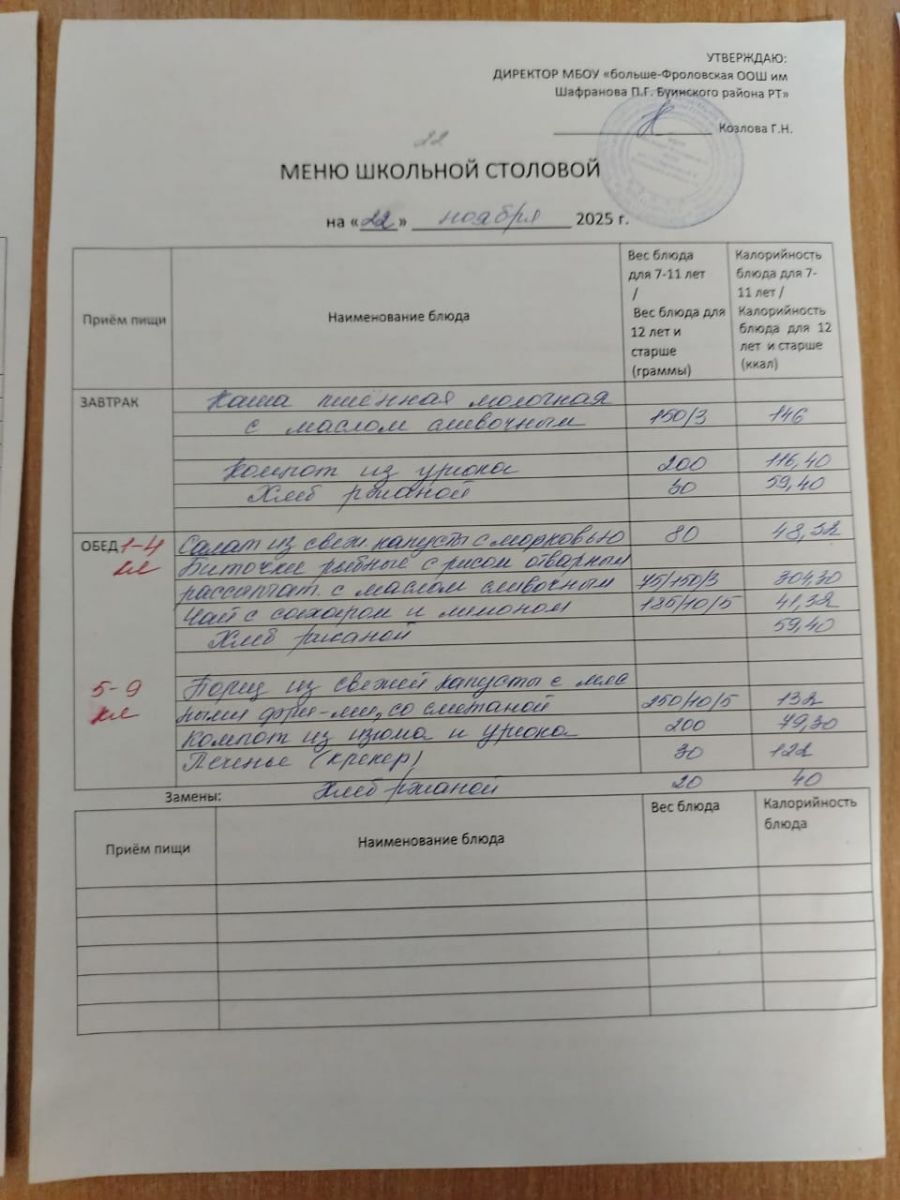 УТВЕРЖДАЮ:
ДИРЕКТОР МБОУ «больше-Фроловская ООШ им
Шафранова П.Г. Буинского района РТ»
Козлова Г.Н.
22
МЕНЮ ШКОЛЬНОЙ СТОЛОВОЙ
на «22» ноября 2025 г.
Приём пищи
Наименование блюда
Вес блюда
для 7-11 лет
/
Вес блюда для
12 лет и
старше
(граммы)
Калорийность
блюда для 7-
11 лет /
Калорийность
блюда для 12
лет и старше
(ккал)
ЗАВТРАК
Каша пшённая молочная
с маслом сливочным 150/3 146
Компот из урюка 200 116,40
Хлеб ржаной 30 59,40
ОБЕД 1-4 Салат из свеж капусты с морковью 80 48,32
кл Биточки рыбные с рисом отварным
рассыпчат. с маслом сливочным 75/150/3 304,30
Чай с сахаром и лимоном 185/10/5 41,32
Хлеб ржаной 59,40
5-9 Борщ из свежей капусты с мяс
кл ными фри-ми, со сметаной 250/10/5 132
Компот из изюма и урюка 200 79,30
Печенье (крекер) 30 122
Замены: Хлеб ржаной 20 40
Приём пищи
Наименование блюда
Вес блюда
Калорийность
блюда